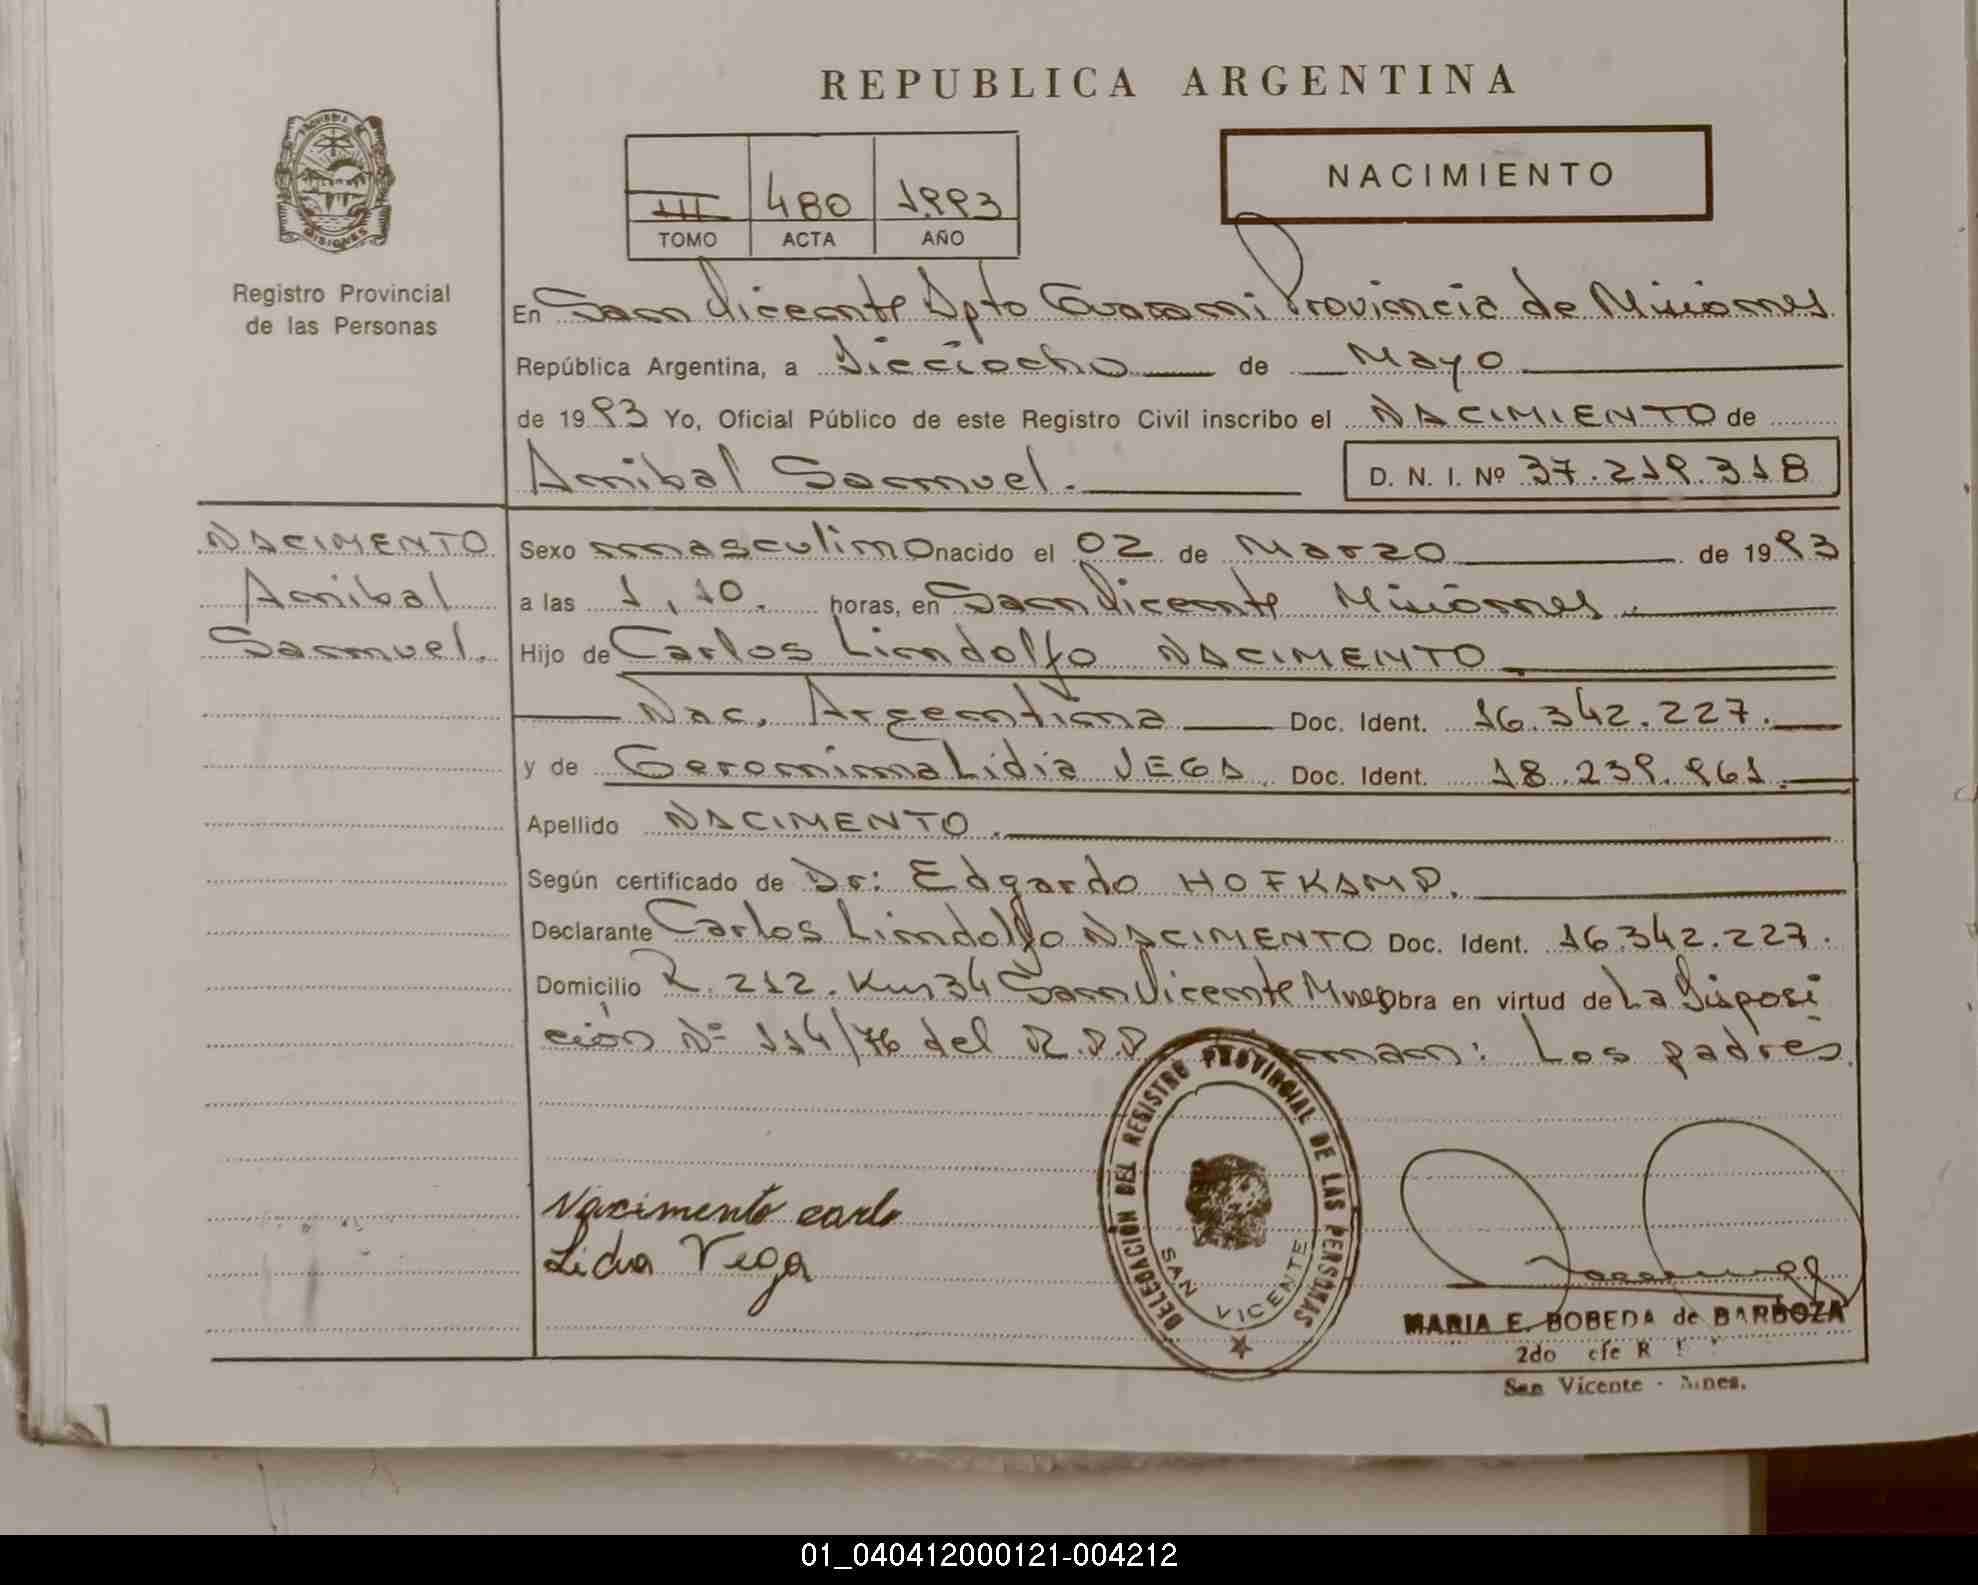 REPUBLICA ARGENTINA
PROVINCIA DE
MISIONES
Registro Provincial
de las Personas
III 480 1993
TOMO ACTA AÑO
NACIMIENTO
En San Vicente Dpto Guarani Provincia de Misiones
República Argentina, a Dieciocho de Mayo
de 1993 Yo, Oficial Público de este Registro Civil inscribo el NACIMIENTO de
Anibal Samuel. D. N. I. Nº 37.219.318
NACIMENTO
Anibal
Samuel.
Sexo masculino nacido el 02 de Marzo de 1993
a las 1,10. horas, en San Vicente Misiones.
Hijo de Carlos Lindolfo NACIMENTO
Nac. Argentina Doc. Ident. 16.342.227.
y de Geronima Lidia VEGA Doc. Ident. 18.239.961.
Apellido NACIMENTO.
Según certificado de Dr: Edgardo HOFKAMP.
Declarante Carlos Lindolfo NACIMENTO Doc. Ident. 16.342.227.
Domicilio R. 212. Km 34 San Vicente Mnes obra en virtud de La Disposi
ción Nº 114/76 del R.P.P. man: Los padres.
Nacimento carlo
Lidia Vega
DELEGACIÓN DEL REGISTRO PROVINCIAL DE LAS PERSONAS
SAN VICENTE
MARIA E. BOBEDA de BARBOZA
2do efe R
San Vicente - Mnes.
01_040412000121-004212